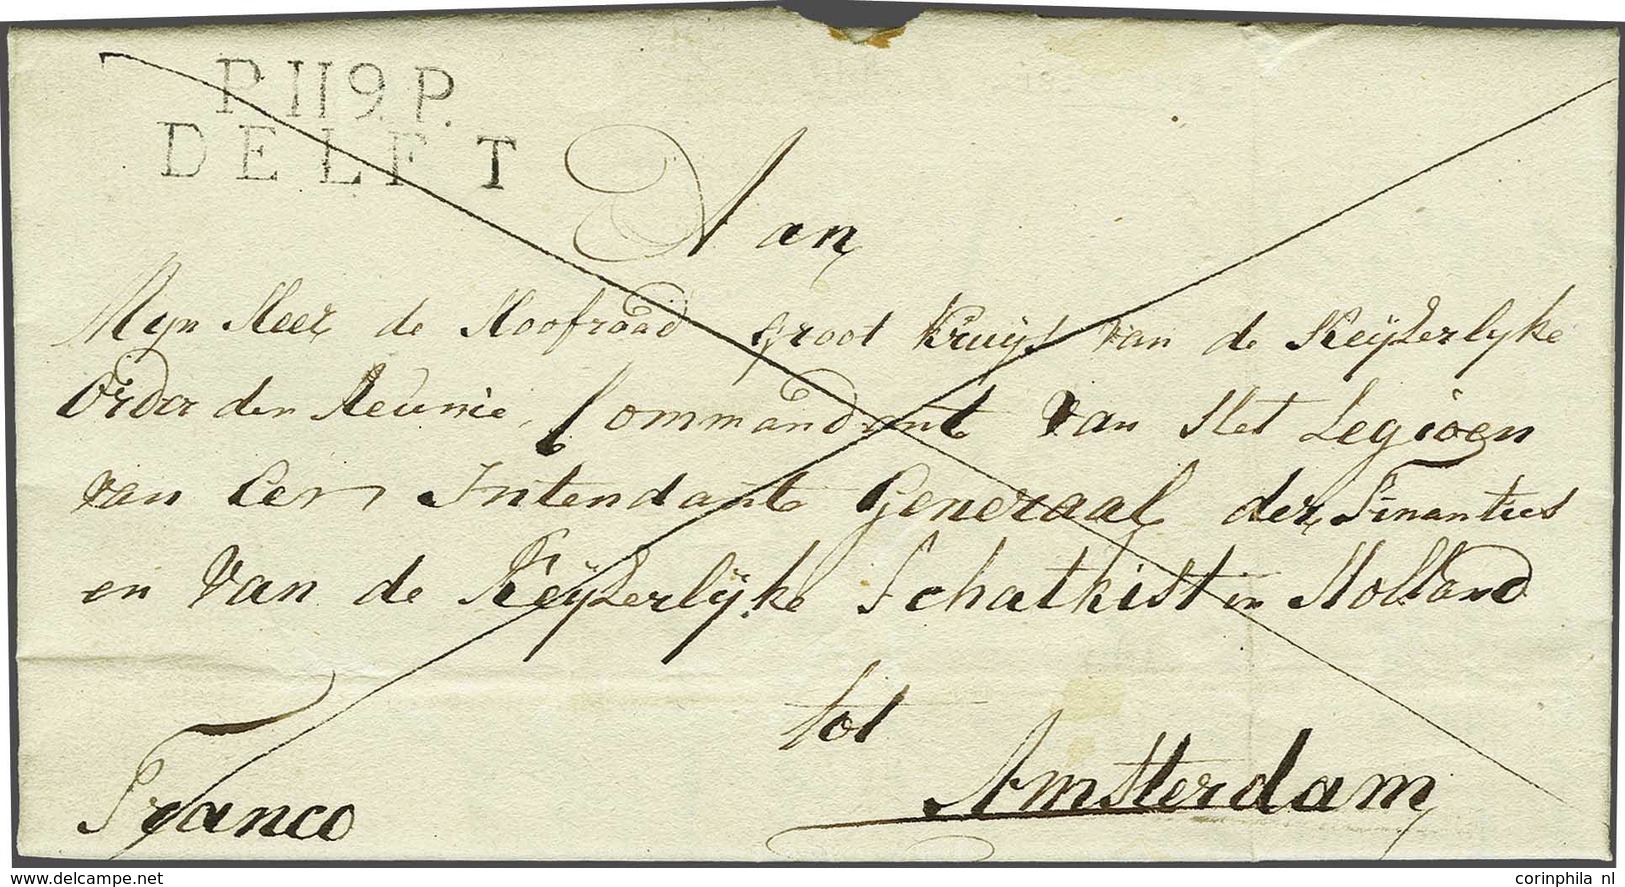 P.119.P.
DELFT
Aan
Mijn Heer de Hoofraad Groot Kruijs van de Keijzerlyke
Order der Reunie, Commandant van Het Legioen
van Eer, Intendant Generaal der Finanties
en van de Keijzerlijke Schatkist in Holland
tot
Amsterdam
Franco
www.delcampe.net
corinphila nl